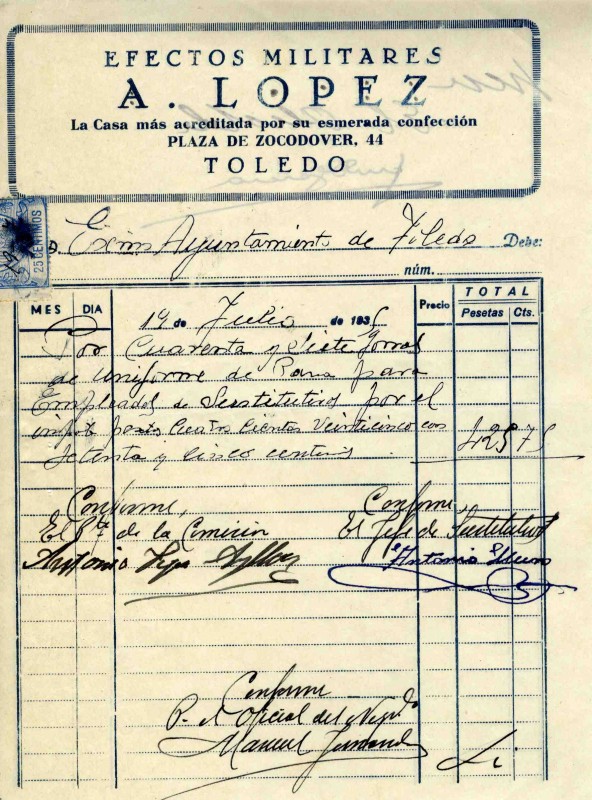 EFECTOS MILITARES
A. LOPEZ
La Casa más acreditada por su esmerada confección
PLAZA DE ZOCODOVER, 44
TOLEDO
25 CENTIMOS
D. Excmo Ayuntamiento de Toledo Debe:
núm.
MES DIA 19 de Julio de 1935 Precio TOTAL
Pesetas Cts.
Por Cuarenta y Siete Gorras
de Uniforme de Pana para
Empleados de Sustitutivos por el
importe pesetas Cuatro Cientos Veinticinco con
Setenta y Cinco centimos 425 75
Conforme, Conforme,
El Pte de la Comisión El Jefe de Sustitutivos
Antonio
Antonio
Conforme
P. A Oficial del Negdo
Manuel